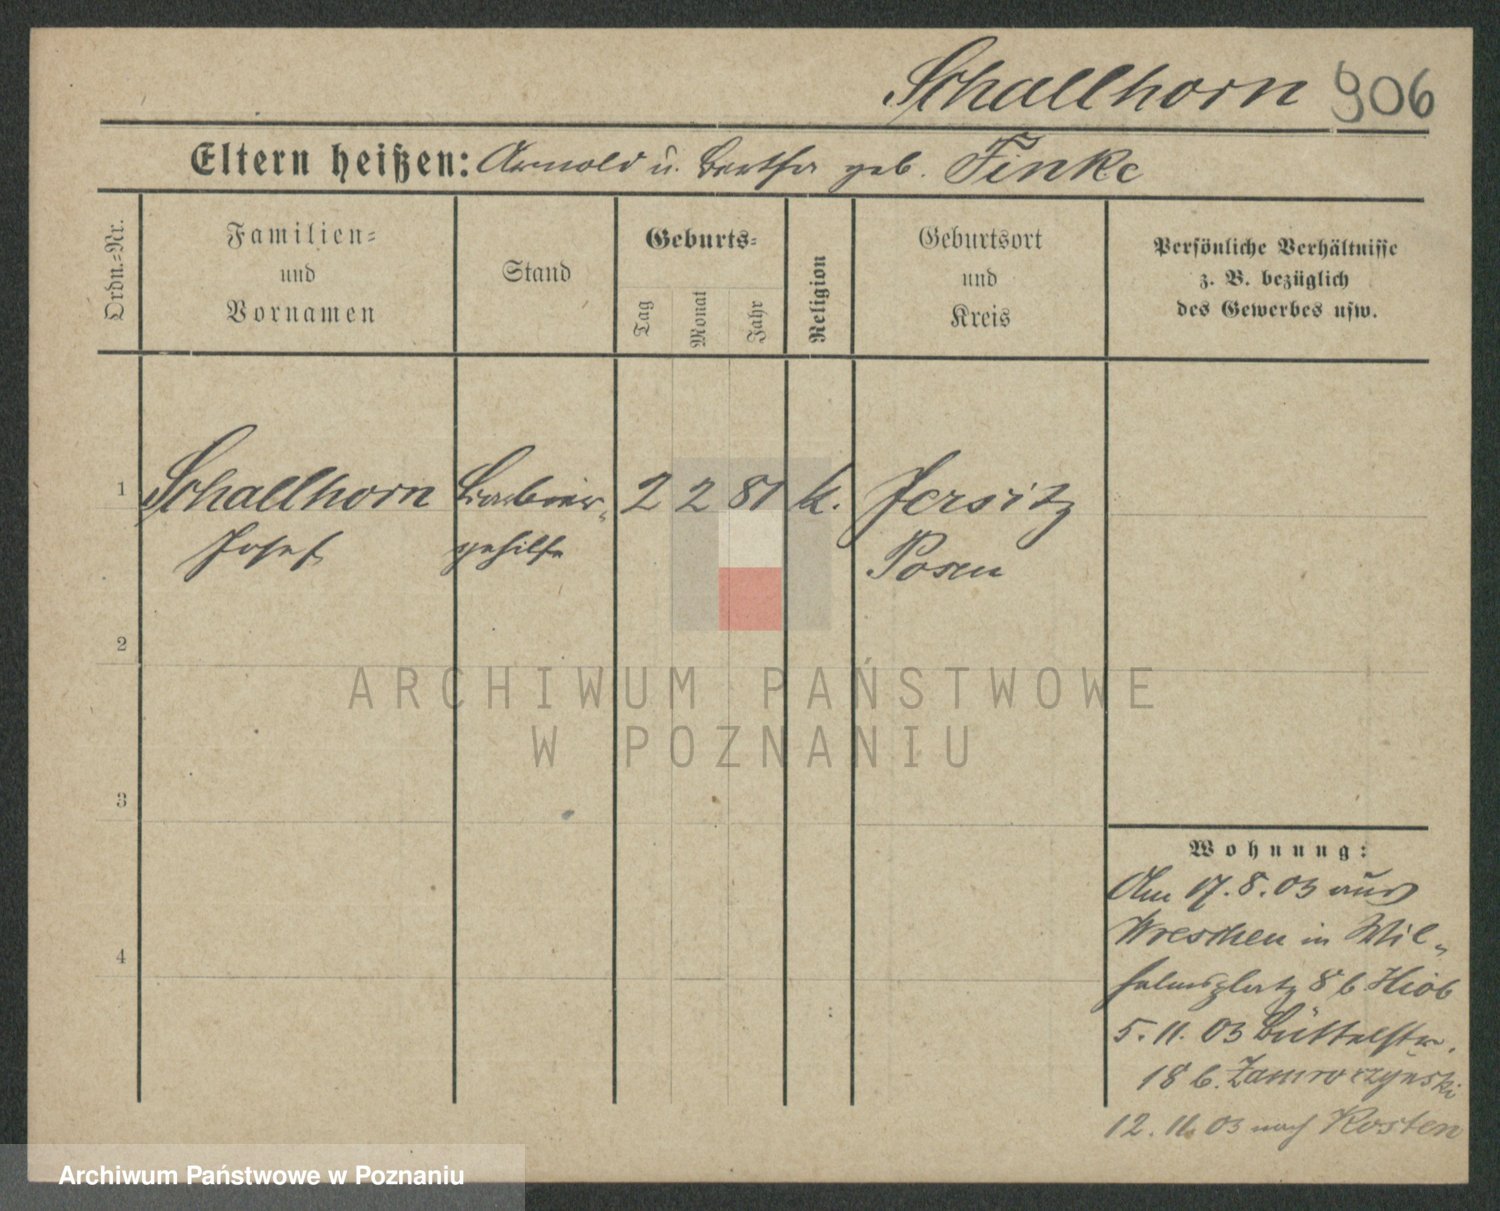 Schallhorn 906
Eltern heißen: Arnold u. Bertha geb. Finke
Ordn.-Nr.
Familien-
und
Vornamen
Stand
Geburts-
Tag
Monat
Jahr
Religion
Geburtsort
und
Kreis
Persönliche Verhältnisse
z. B. bezüglich
des Gewerbes usw.
1 Schallhorn Barbier- 2 2 81 k. Jersitz
Josef gehilfe Posen
2
3
4
ARCHIWUM PAŃSTWOWE
W POZNANIU
Wohnung:
Am 17.8.03 aus
Wreschen in Wil-
helmsplatz 8 b Hiob
5.11.03 Büttelstr.
18 b.
12.11.03 nach Kosten
Archiwum Państwowe w Poznaniu